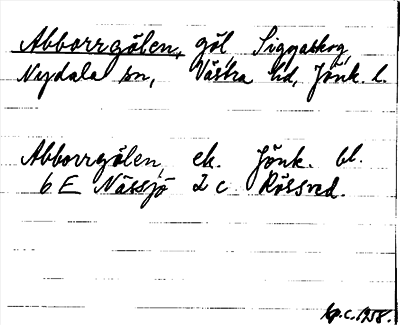 Abborrgölen, göl, Siggaskog,
Nydala sn, Västra hd, Jönk. l.
Abborrgölen, ek. Jönk. bl.
6 E Nässjö 2 c Rössved.
kp.c.1958.